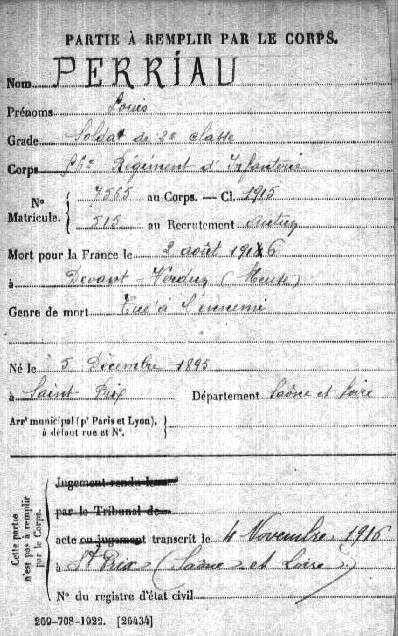 PARTIE À REMPLIR PAR LE CORPS.
Nom PERRIAU
Prénoms Louis
Grade Soldat de 2e classe
Corps Régiment d'Infanterie
N° Matricule. { 7565 au Corps. — Cl. 1915
515 au Recrutement Autun
Mort pour la France le 2 août 1916
à Devant Verdun (Meuse)
Genre de mort Tué à l'ennemi
Né le 5 Décembre 1895
à Saint Prix Département Saône et Loire
Arrt municipal (pr Paris et Lyon), }
à défaut rue et N°.
Cette partie n'est pas à remplir par le Corps.
Jugement rendu le
par le Tribunal de
acte ou jugement transcrit le 4 Novembre 1916
à St Prix (Saône et Loire)
N° du registre d'état civil
269-708-1922. [26434]